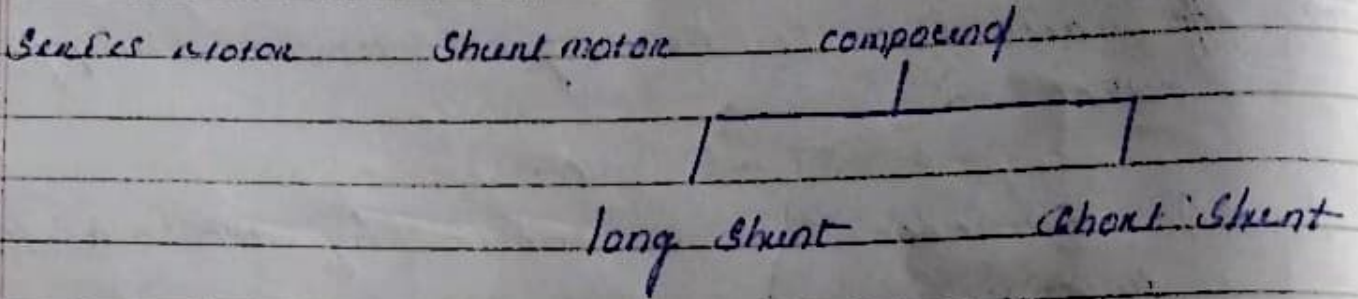 Series Motor Shunt motor compound
long shunt Short Shunt